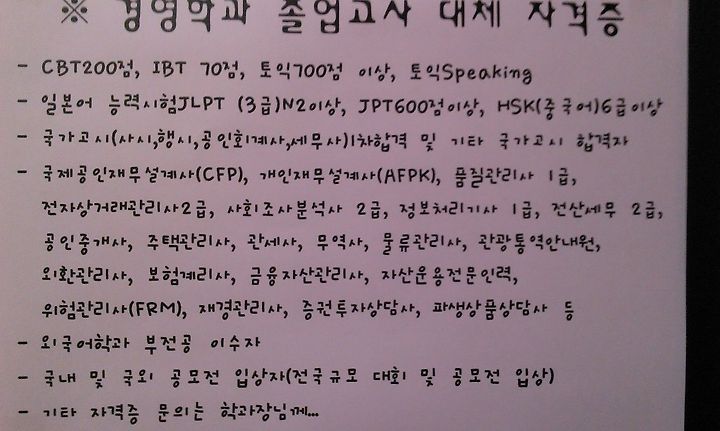 ※ 경영학과 졸업고사 대체 자격증
- CBT200점, IBT 70점, 토익700점 이상, 토익Speaking
- 일본어 능력시험JLPT (3급)N2이상, JPT600점이상, HSK(중국어)6급이상
- 국가고시(사시,행시,공인회계사,세무사)1차합격 및 기타 국가고시 합격자
- 국제공인재무설계사(CFP), 개인재무설계사(AFPK), 품질관리사 1급,
전자상거래관리사2급, 사회조사분석사 2급, 정보처리기사 1급, 전산세무 2급,
공인중개사, 주택관리사, 관세사, 무역사, 물류관리사, 관광통역안내원,
외환관리사, 보험계리사, 금융자산관리사, 자산운용전문인력,
위험관리사(FRM), 재경관리사, 증권투자상담사, 파생상품상담사 등
- 외국어학과 부전공 이수자
- 국내 및 국외 공모전 입상자(전국규모 대회 및 공모전 입상)
- 기타 자격증 문의는 학과장님께...